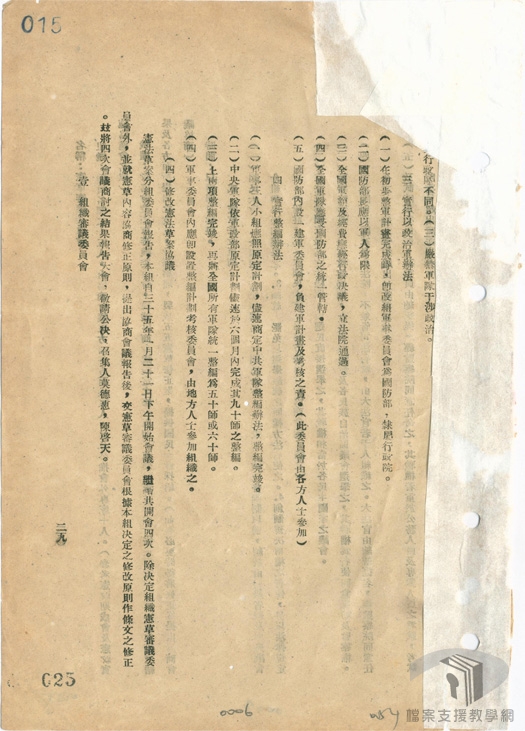 015
行政院不同。(三)嚴禁軍隊干涉政治。
三 實行以政治軍辦法
(一)在初步整軍計畫完成時,即改組軍事委員會為國防部,隸屬行政院。
(二)國防部長應以軍人為限
(三)全國軍額及軍費應經行政院決議,立法院通過。
(四)全國軍隊應受國防部之統一管轄。
(五)國防部內設一建軍委員會,負建軍計畫及考核之責。(此委員會由各方人士參加)
四 實行整編辦法
(一)軍事三人小組應照原定計劃,儘速商定中共軍隊整編辦法,整編完竣。
(二)中央軍隊依軍政部原定計劃儘速於六個月內完成其九十師之整編。
(三)上兩項整編完竣,再將全國所有軍隊統一整編為五十師或六十師。
(四)軍事委員會內應即設置整編計劃考核委員會,由地方人士參加組織之。
(四)修改憲法草案協議
憲法草案分組委員會報告,本組自三十五年一月二十一日下午開始會議,繼續共開會四次。除決定組織憲草審議委
員會外,並就憲草內容協商修正原則,提出協商會議報告後,交憲草審議委員會根據本組決定之修改原則作條文之修正
。玆將四次會議商討之結果報告大會,敬請公決,召集人莫德惠,陳啓天。
壹 組織審議委員會
二九
025
9000
檔案支援教學網